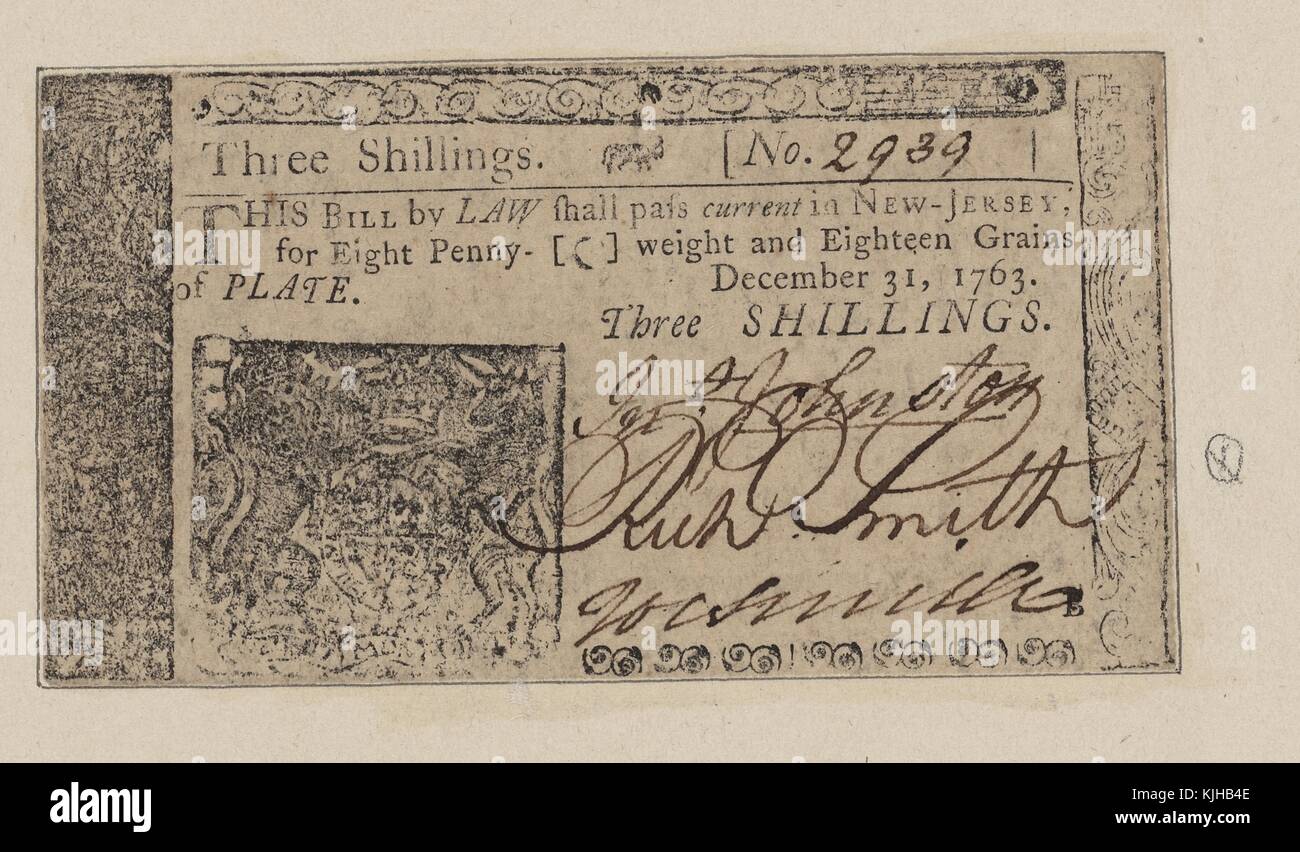 Three Shillings. [No. 2939 ]
THIS BILL by LAW ſhall paſs current in NEW-JERSEY,
for Eight Penny- [ ] weight and Eighteen Grains
of PLATE. December 31, 1763.
Three SHILLINGS.
Johnston
Richd. Smith
Jos Smith
B
alamy stock photo
KJHB4E
www.alamy.com